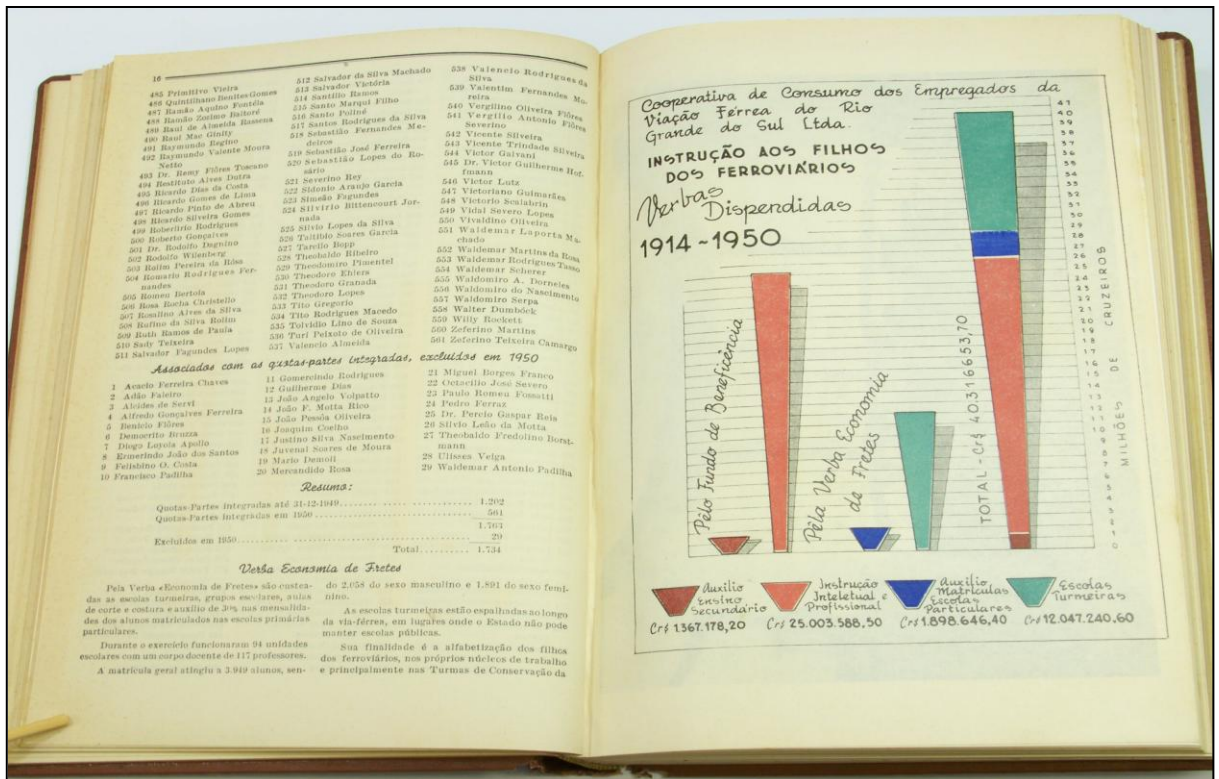 16
485 Primitivo Vieira
486 Quintiliano Benites Gomes
487 Ramão Aquino Fontéla
488 Ramão Zozimo Baltoré
489 Raul de Almeida Rassena
490 Raul Mac Ginity
491 Raymundo Regino
492 Raymundo Valente Moura
Netto
493 Dr. Remy Flôres Toscano
494 Restituto Alves Dutra
495 Ricardo Dias da Costa
496 Ricardo Gomes de Lima
497 Ricardo Pinto de Abreu
498 Ricardo Silveira Gomes
499 Roberlirio Rodrigues
500 Roberto Gonçalves
501 Dr. Rodolfo Degnino
502 Rodolfo Wilenberg
503 Rolim Pereira da Rôsa
504 Romario Rodrigues Fer-
nandes
505 Romeu Bertola
506 Rosa Rocha Christello
507 Rosalino Alves da Silva
508 Rufino da Silva Rolim
509 Ruth Ramos de Paula
510 Sady Teixeira
511 Salvador Fagundes Lopes
512 Salvador da Silva Machado
513 Salvador Victória
514 Santilio Ramos
515 Santo Marqui Filho
516 Santo Poliné
517 Santos Rodrigues da Silva
518 Sebastião Fernandes Me-
deiros
519 Sebastião José Ferreira
520 Sebastião Lopes do Ro-
sário
521 Severino Rey
522 Sidonio Araujo Garcia
523 Simeão Fagundes
524 Silvirio Bittencourt Jor-
nada
525 Silvio Lopes da Silva
526 Taltibio Soares Garcia
527 Tarcilo Bopp
528 Theobaldo Ribeiro
529 Theodomiro Pimentel
530 Theodoro Ehlers
531 Theodoro Granada
532 Theodoro Lopes
533 Tito Gregorio
534 Tito Rodrigues Macedo
535 Tolvidio Lino de Souza
536 Turi Peixoto de Oliveira
537 Valencio Almeida
538 Valencio Rodrigues da
Silva
539 Valentim Fernandes Mo-
reira
540 Vergilino Oliveira Flôres
541 Vergilio Antonio Flôres
Severino
542 Vicente Silveira
543 Vicente Trindade Silveira
544 Victor Galvani
545 Dr. Victor Guilherme Hof-
fmann
546 Victor Lutz
547 Victoriano Guimarães
548 Victorio Scalabrin
549 Vidal Severo Lopes
550 Vivaldino Oliveira
551 Waldemar Laporta Ma-
chado
552 Waldemar Martins da Rosa
553 Waldemar Rodrigues Tasso
554 Waldemar Scherer
555 Waldomiro A. Dorneles
556 Waldomiro do Nascimento
557 Waldomiro Serpa
558 Walter Dumböck
559 Willy Rockett
560 Zeferino Martins
561 Zeferino Teixeira Camargo
Associados com as quotas-partes integradas, excluidos em 1950
1 Acacio Ferreira Chaves
2 Adão Faleiro
3 Alcides de Servi
4 Alfredo Gonçalves Ferreira
5 Benicio Flôres
6 Democrito Bruzza
7 Diogo Loyola Apollo
8 Ermerindo João dos Santos
9 Felisbino O. Costa
10 Francisco Padilha
11 Gomercindo Rodrigues
12 Guilherme Dias
13 João Angelo Volpatto
14 João F. Motta Rico
15 João Pessôa Oliveira
16 Joaquim Coelho
17 Justino Silva Nascimento
18 Juvenal Soares de Moura
19 Mario Demoli
20 Mercandido Rosa
21 Miguel Borges Franco
22 Octacilio José Severo
23 Paulo Romeu Fossatti
24 Pedro Ferraz
25 Dr. Percio Gaspar Reis
26 Silvio Leão da Motta
27 Theobaldo Fredolino Borst-
mann
28 Ulisses Veiga
29 Waldemar Antonio Padilha
Resumo:
Quotas-Partes integradas até 31-12-1949 1.202
Quotas-Partes integradas em 1950 561
1.763
Excluidos em 1950 29
Total 1.734
Verba Economia de Fretes
Pela Verba «Economia de Fretes» são custea-
das as escolas turmeiras, grupos escolares, aulas
de corte e costura e auxilio de 30% nas mensalida-
des dos alunos matriculados nas escolas primárias
particulares.
Durante o exercício funcionaram 94 unidades
escolares com um corpo docente de 117 professores.
A matrícula geral atingiu a 3.949 alunos, sen-
do 2.058 do sexo masculino e 1.891 do sexo femi-
nino.
As escolas turmeiras estão espalhadas ao longo
da via-férrea, em lugares onde o Estado não pode
manter escolas públicas.
Sua finalidade é a alfabetização dos filhos
dos ferroviários, nos próprios núcleos de trabalho
e principalmente nas Turmas de Conservação da
Cooperativa de Consumo dos Empregados da
Viação Férrea do Rio
Grande do Sul Ltda.
INSTRUÇÃO AOS FILHOS
DOS FERROVIÁRIOS
Verbas
Dispendidas
1914 ~ 1950
Pêlo Fundo de Beneficência
Péla Verba Economia
de Fretes
TOTAL = Cr$ 40.316653,70
MILHÕES DE CRUZEIROS
Auxilio
Ensino
Secundário
Cr$ 1.367.178,20
Instrução
Inteletual e
Profissional
Cr$ 25.003.588,50
Auxilio
Matriculas
Escolas
Particulares
Cr$ 1.898.646,40
Escolas
Turmeiras
Cr$ 12.047.240,60